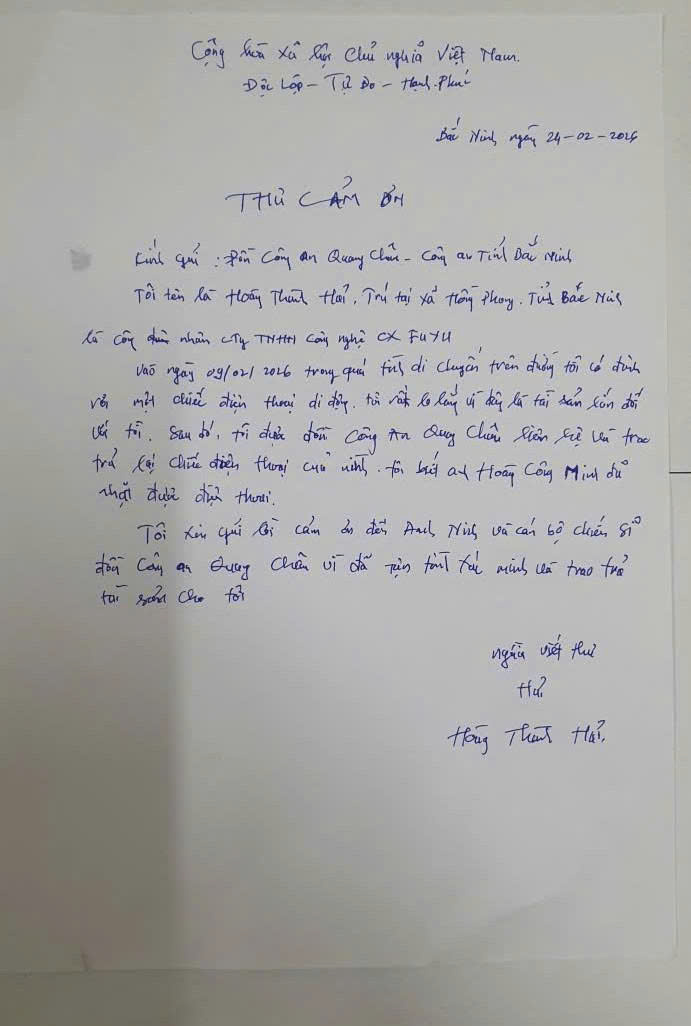 Cộng hòa xã hội Chủ nghĩa Việt Nam.
Độc Lập - Tự Do - Hạnh Phúc
Bắc Ninh ngày 24-02-2026
THƯ CẢM ƠN
Kính gửi : Đồn Công An Quang Châu - Công an Tỉnh Bắc Ninh
Tôi tên là Hoàng Thanh Hải, Trú tại xã Hồng Phong, Tỉnh Bắc Ninh
là công nhân cty TNHH công nghệ CX FUYU
vào ngày 09/02/2026 trong quá trình di chuyển trên đường tôi có đánh
rơi một chiếc điện thoại di động. tôi rất lo lắng vì đây là tài sản lớn đối
với tôi. Sau đó, tôi được đồn Công An Quang Châu liên hệ và trao
trả lại chiếc điện thoại của mình. tôi biết anh Hoàng Công Minh đã
nhặt được điện thoại.
Tôi xin gửi lời cảm ơn đến Anh Minh và cán bộ chiến sĩ
đồn Công an Quang Châu vì đã tận tình xác minh và trao trả
tài sản cho tôi
người viết thư
Hải
Hoàng Thanh Hải.